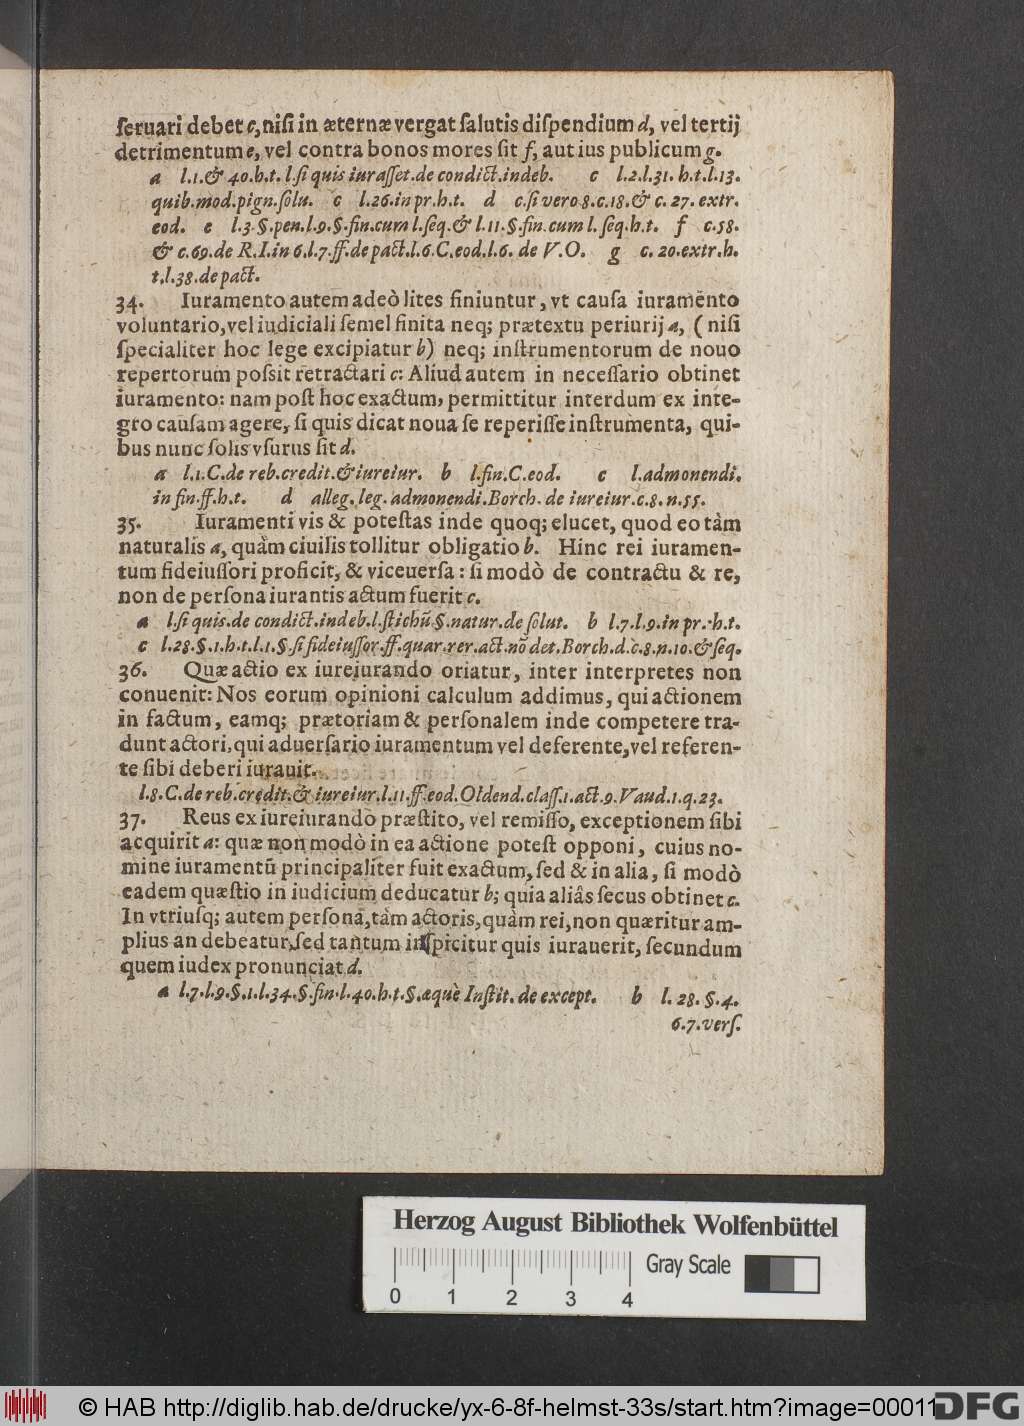 ſeruari debet c, niſi in æternæ vergat ſalutis diſpendium d, vel tertij
detrimentum e, vel contra bonos mores ſit f, aut ius publicum g.
a l.1.& 40.h.t. l.ſi quis iuraſſet.de condict.indeb. c l.2.l.31.h.t.l.13.
quib.mod.pign.ſolu. c l.26.in pr.h.t. d c.ſi vero 8.c.18.& c. 27. extr.
eod. e l.3.§.pen.l.9.§.fin.cum l.ſeq.& l.11.§.fin.cum l.ſeq.h.t. f c.58.
& c.69.de R.I.in 6.l.7.ff.de pact.l.6.C.eod.l.6. de V.O. g c.20.extr.h.
t.l.38.de pact.
34. Iuramento autem adeò lites finiuntur, vt cauſa iuramēto
voluntario, vel iudiciali ſemel finita neq; prætextu periurij a, (niſi
ſpecialiter hoc lege excipiatur b) neq; inſtrumentorum de nouo
repertorum poſsit retractari c: Aliud autem in neceſſario obtinet
iuramento: nam poſt hoc exactum, permittitur interdum ex inte-
gro cauſam agere, ſi quis dicat noua ſe reperiſſe inſtrumenta, qui-
bus nunc ſolis vſurus ſit d.
a l.1.C.de reb.credit.& iureiur. b l.fin.C.eod. c l.admonendi.
in fin.ff.h.t. d alleg. leg. admonendi.Borch. de iureiur.c.8.n.55.
35. Iuramenti vis & poteſtas inde quoq; elucet, quod eo tàm
naturalis a, quàm ciuilis tollitur obligatio b. Hinc rei iuramen-
tum fideiuſſori proficit, & viceuerſa: ſi modò de contractu & re,
non de perſona iurantis actum fuerit c.
a l.ſi quis.de condict.indeb.l.ſtichū §.natur.de ſolut. b l.7.l.9.in pr.h.t.
c l.28.§.1.h.t.l.1.§.ſi fideiuſſor.ff.quar.rer.act.nō det.Borch.d.c.8.n.10.& ſeq.
36. Quæ actio ex iureiurando oriatur, inter interpretes non
conuenit: Nos eorum opinioni calculum addimus, qui actionem
in factum, eamq; prætoriam & perſonalem inde competere tra-
dunt actori, qui aduerſario iuramentum vel deferente, vel referen-
te ſibi deberi iurauit.
l.8.C.de reb.credit.& iureiur.l.11.ff.eod.Oldend.claſſ.1.act.9.Vaud.1.q.23.
37. Reus ex iureiurando præſtito, vel remiſſo, exceptionem ſibi
acquirit a: quæ non modò in ea actione poteſt opponi, cuius no-
mine iuramentū principaliter fuit exactum, ſed & in alia, ſi modò
eadem quæſtio in iudicium deducatur b; quia aliâs ſecus obtinet c.
In vtriuſq; autem perſonā, tàm actoris, quàm rei, non quæritur am-
plius an debeatur, ſed tantum inſpicitur quis iurauerit, ſecundum
quem iudex pronunciat d.
a l.7.l.9.§.1.l.34.§.fin.l.40.h.t.§.æquè Inſtit. de except. b l. 28. §.4.
6.7.verſ.
Herzog August Bibliothek Wolfenbüttel
Gray Scale
0 1 2 3 4
© HAB http://diglib.hab.de/drucke/yx-6-8f-helmst-33s/start.htm?image=00011
DFG